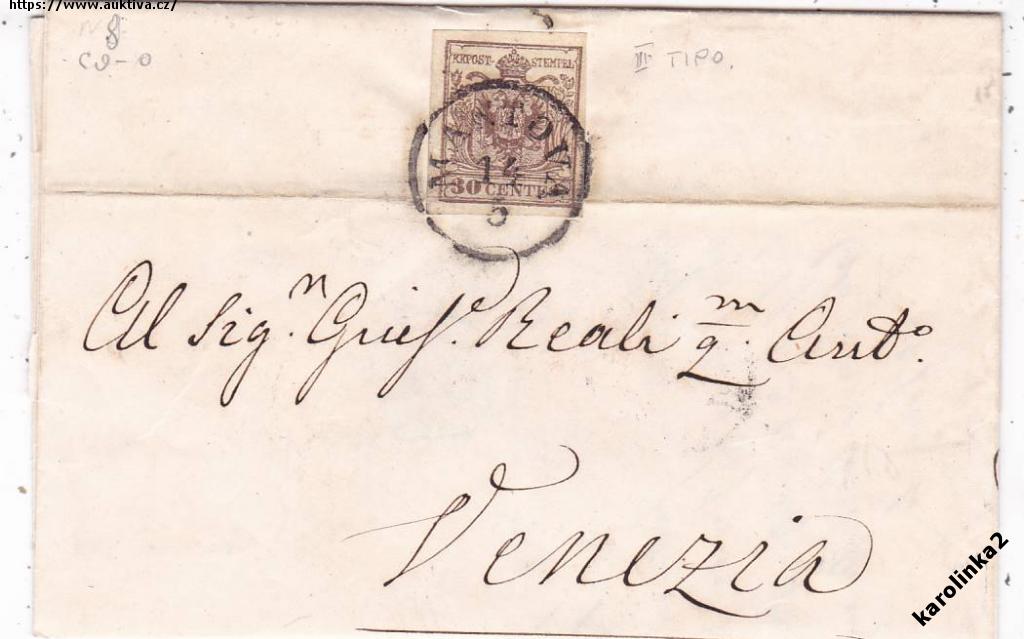 https://www.auktiva.cz/
8
C9-0
III TIPO.
KKPOST-STEMPEL
MANTOVA
14
5
30 CENTES
Al Sig.n Gius.e Reali q.m Ant.o
Venezia
karolinka2